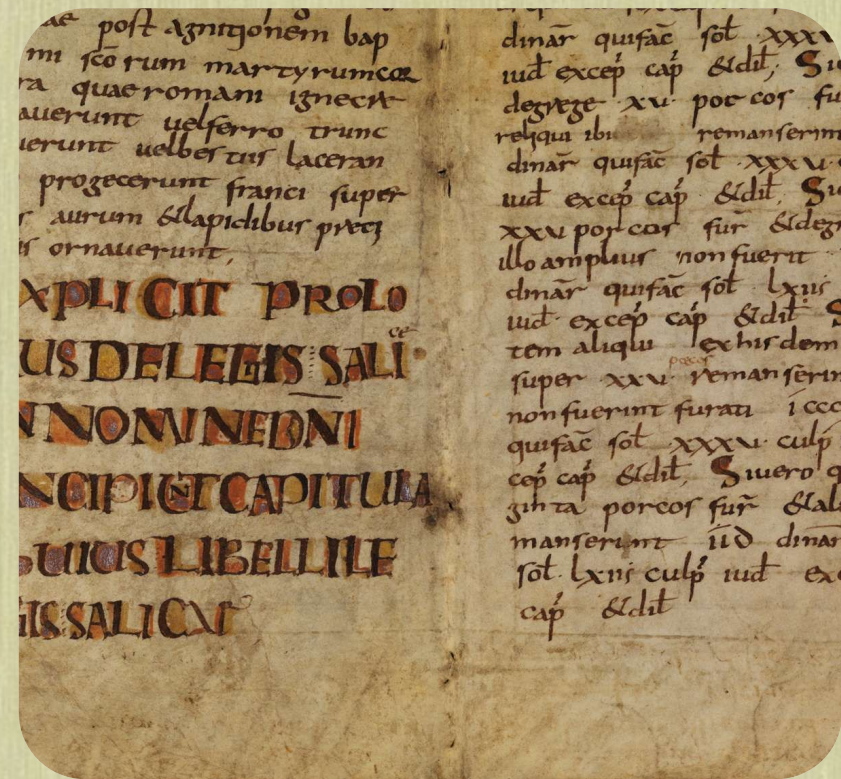 post agnitionem bap
mi scōrum martyrum cor
quae romani igne cre
averunt vel ferro trunc
verunt vel bestiis laceran
progecerunt franci super
aurum & lapidibus preti
ornaverunt,
XPLICIT PROLO
US DE LEGIS SALI
N NOMINE DN̄I
NCIPIUNT CAPITULA
UIUS LIBELLI LE
GIS SALICAE
dinar̄ qui fac̄ sol̄ xxxv
iud̄ excep̄ cap̄ & dil̄; Si
de grege xv porcos fu
reliqui ibi remanserin
dinar̄ qui fac̄ sol̄ xxxv
iud̄ excep̄ cap̄ & dil̄, Si
xxv porcos fur̄ & deg
illo amplius non fuerit
dinar̄ qui fac̄ sol̄ lxiis
iud̄ excep̄ cap̄ & dil̄ S
tem aliqui ex his dem
super xxv porcos remanserin
non fuerint furati iccc
qui fac̄ sol̄ xxxv culp̄
cep̄ cap̄ & dil̄, Si vero q
ginta porcos fur̄ & al
manserint iid dinar
sol̄ lxiis culp̄ iud̄ ex
cap̄ & dil̄